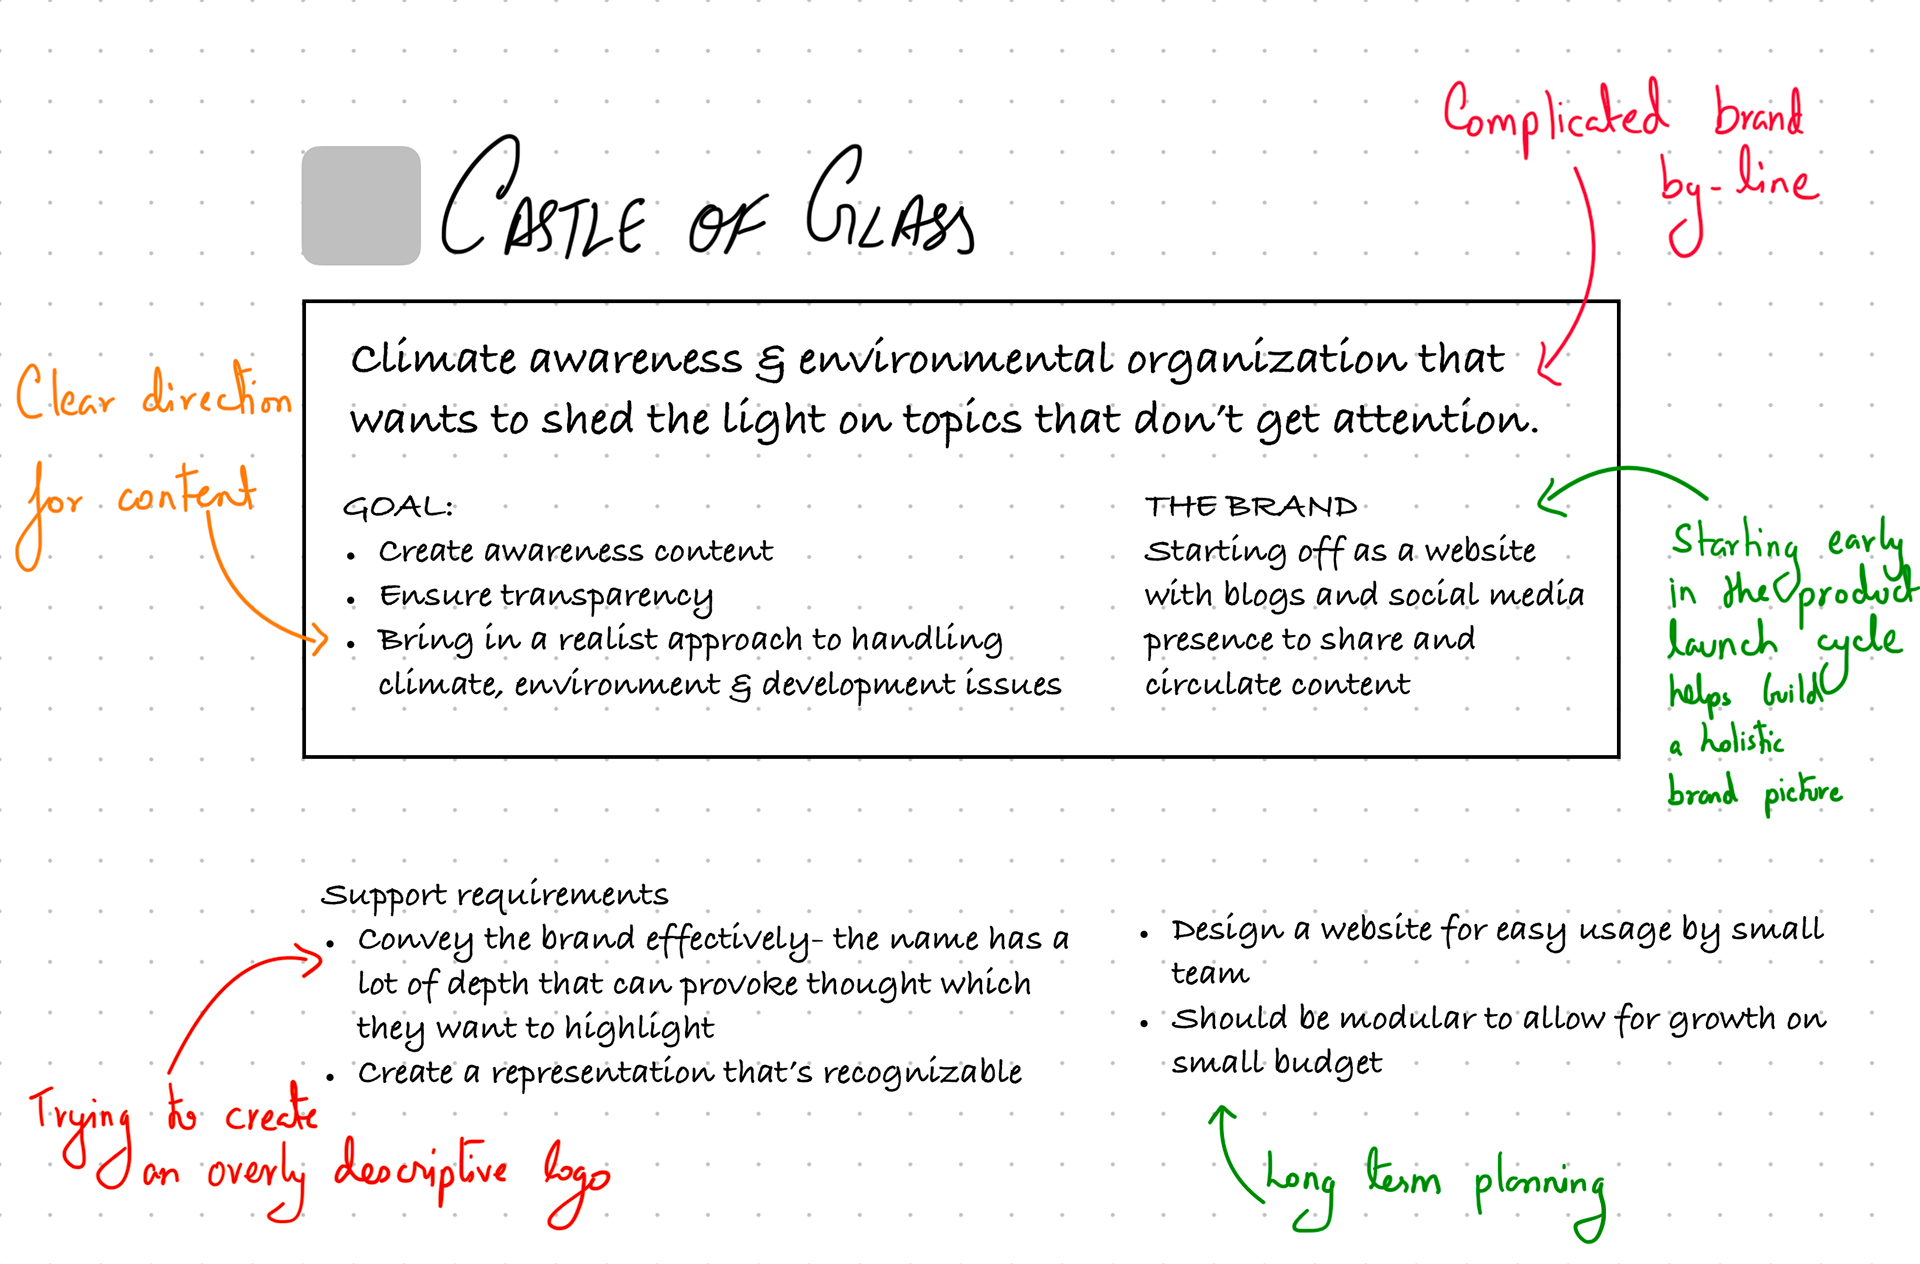 Complicated brand
by-line
CASTLE OF GLASS
Climate awareness & environmental organization that
wants to shed the light on topics that don't get attention.
Clear direction
for content
GOAL:
• Create awareness content
• Ensure transparency
• Bring in a realist approach to handling
climate, environment & development issues
THE BRAND
Starting off as a website
with blogs and social media
presence to share and
circulate content
Starting early
in the product
launch cycle
helps build
a holistic
brand picture
Support requirements
• Convey the brand effectively- the name has a
lot of depth that can provoke thought which
they want to highlight
• Create a representation that's recognizable
• Design a website for easy usage by small
team
• Should be modular to allow for growth on
small budget
Trying to create
an overly descriptive logo
Long term planning